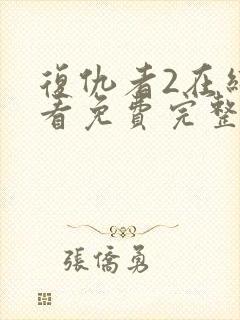 復仇者2在
看免費完整
張僑勇